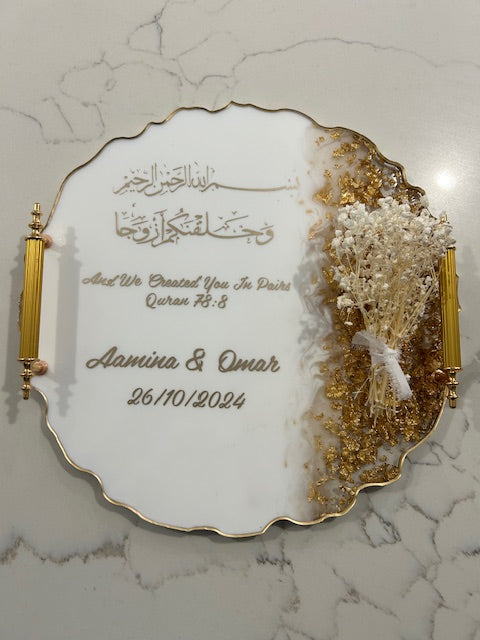 بسم الله الرحمن الرحيم
وَخَلَقْنَٰكُمْ أَزْوَٰجًا
And We Created You In Pairs
Quran 78:8
Aamina & Omar
26/10/2024